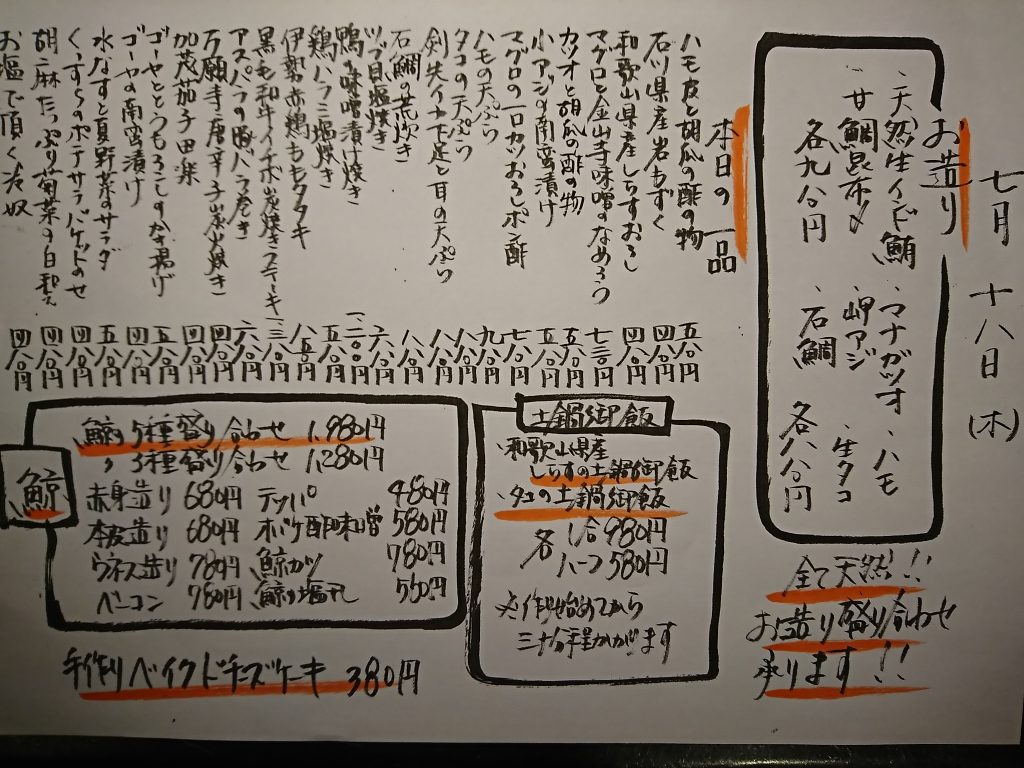 七月十八日(木)
お造り
、天然生インド鮪 、マナガツオ 、ハモ
、甘鯛昆布〆 、岬アジ 、生タコ
各九八〇円 、石鯛 各八八〇円
全て天然!!
お造り盛り合わせ
承ります!!
本日の一品
ハモ皮と胡瓜の酢の物 五八〇円
石川県産岩もずく 四八〇円
和歌山県産しらすおろし 四八〇円
マグロと金山寺味噌のなめろう 七三〇円
カツオと胡瓜の酢の物 五八〇円
小アジの南蛮漬け 五八〇円
マグロの一口カツおろしポン酢 七八〇円
ハモの天ぷら 九八〇円
タコの天ぷら 八八〇円
剣先イカ下足と耳の天ぷら 八八〇円
石鯛の荒炊き 八八〇円
ツブ貝塩焼き 六八〇円
鴨の味噌漬け焼き 一二〇〇円
鶏ハラミ塩焼き 五八〇円
伊勢赤鶏ももタタキ 八五〇円
黒毛和牛イチボ炭焼きステーキ
アスパラの豚バラ巻き 六八〇円
万願寺唐辛子炭火焼き 四八〇円
加茂茄子田楽 四八〇円
ゴーヤととうもろこしのかき揚げ 五八〇円
ゴーヤの南蛮漬け 四八〇円
水なすと夏野菜のサラダ 五八〇円
くーすらのポテサラバケットのせ 四八〇円
胡麻たっぷり菊菜の白和え 四八〇円
お塩で頂く冷奴 四八〇円
土鍋御飯
、和歌山県産
しらすの土鍋御飯
、タコの土鍋御飯
各 1合980円
ハーフ580円
※作り始めてから
三十分程かかります
鯨
鯨5種盛り合わせ 1,980円
〃3種盛り合わせ 1,280円
赤身造り 680円 テッパ 480円
本皮造り 680円 オバケ酢味噌 580円
ウネス造り 780円 鯨カツ 780円
ベーコン 780円 鯨の塩干 550円
手作りベイクドチーズケーキ 380円